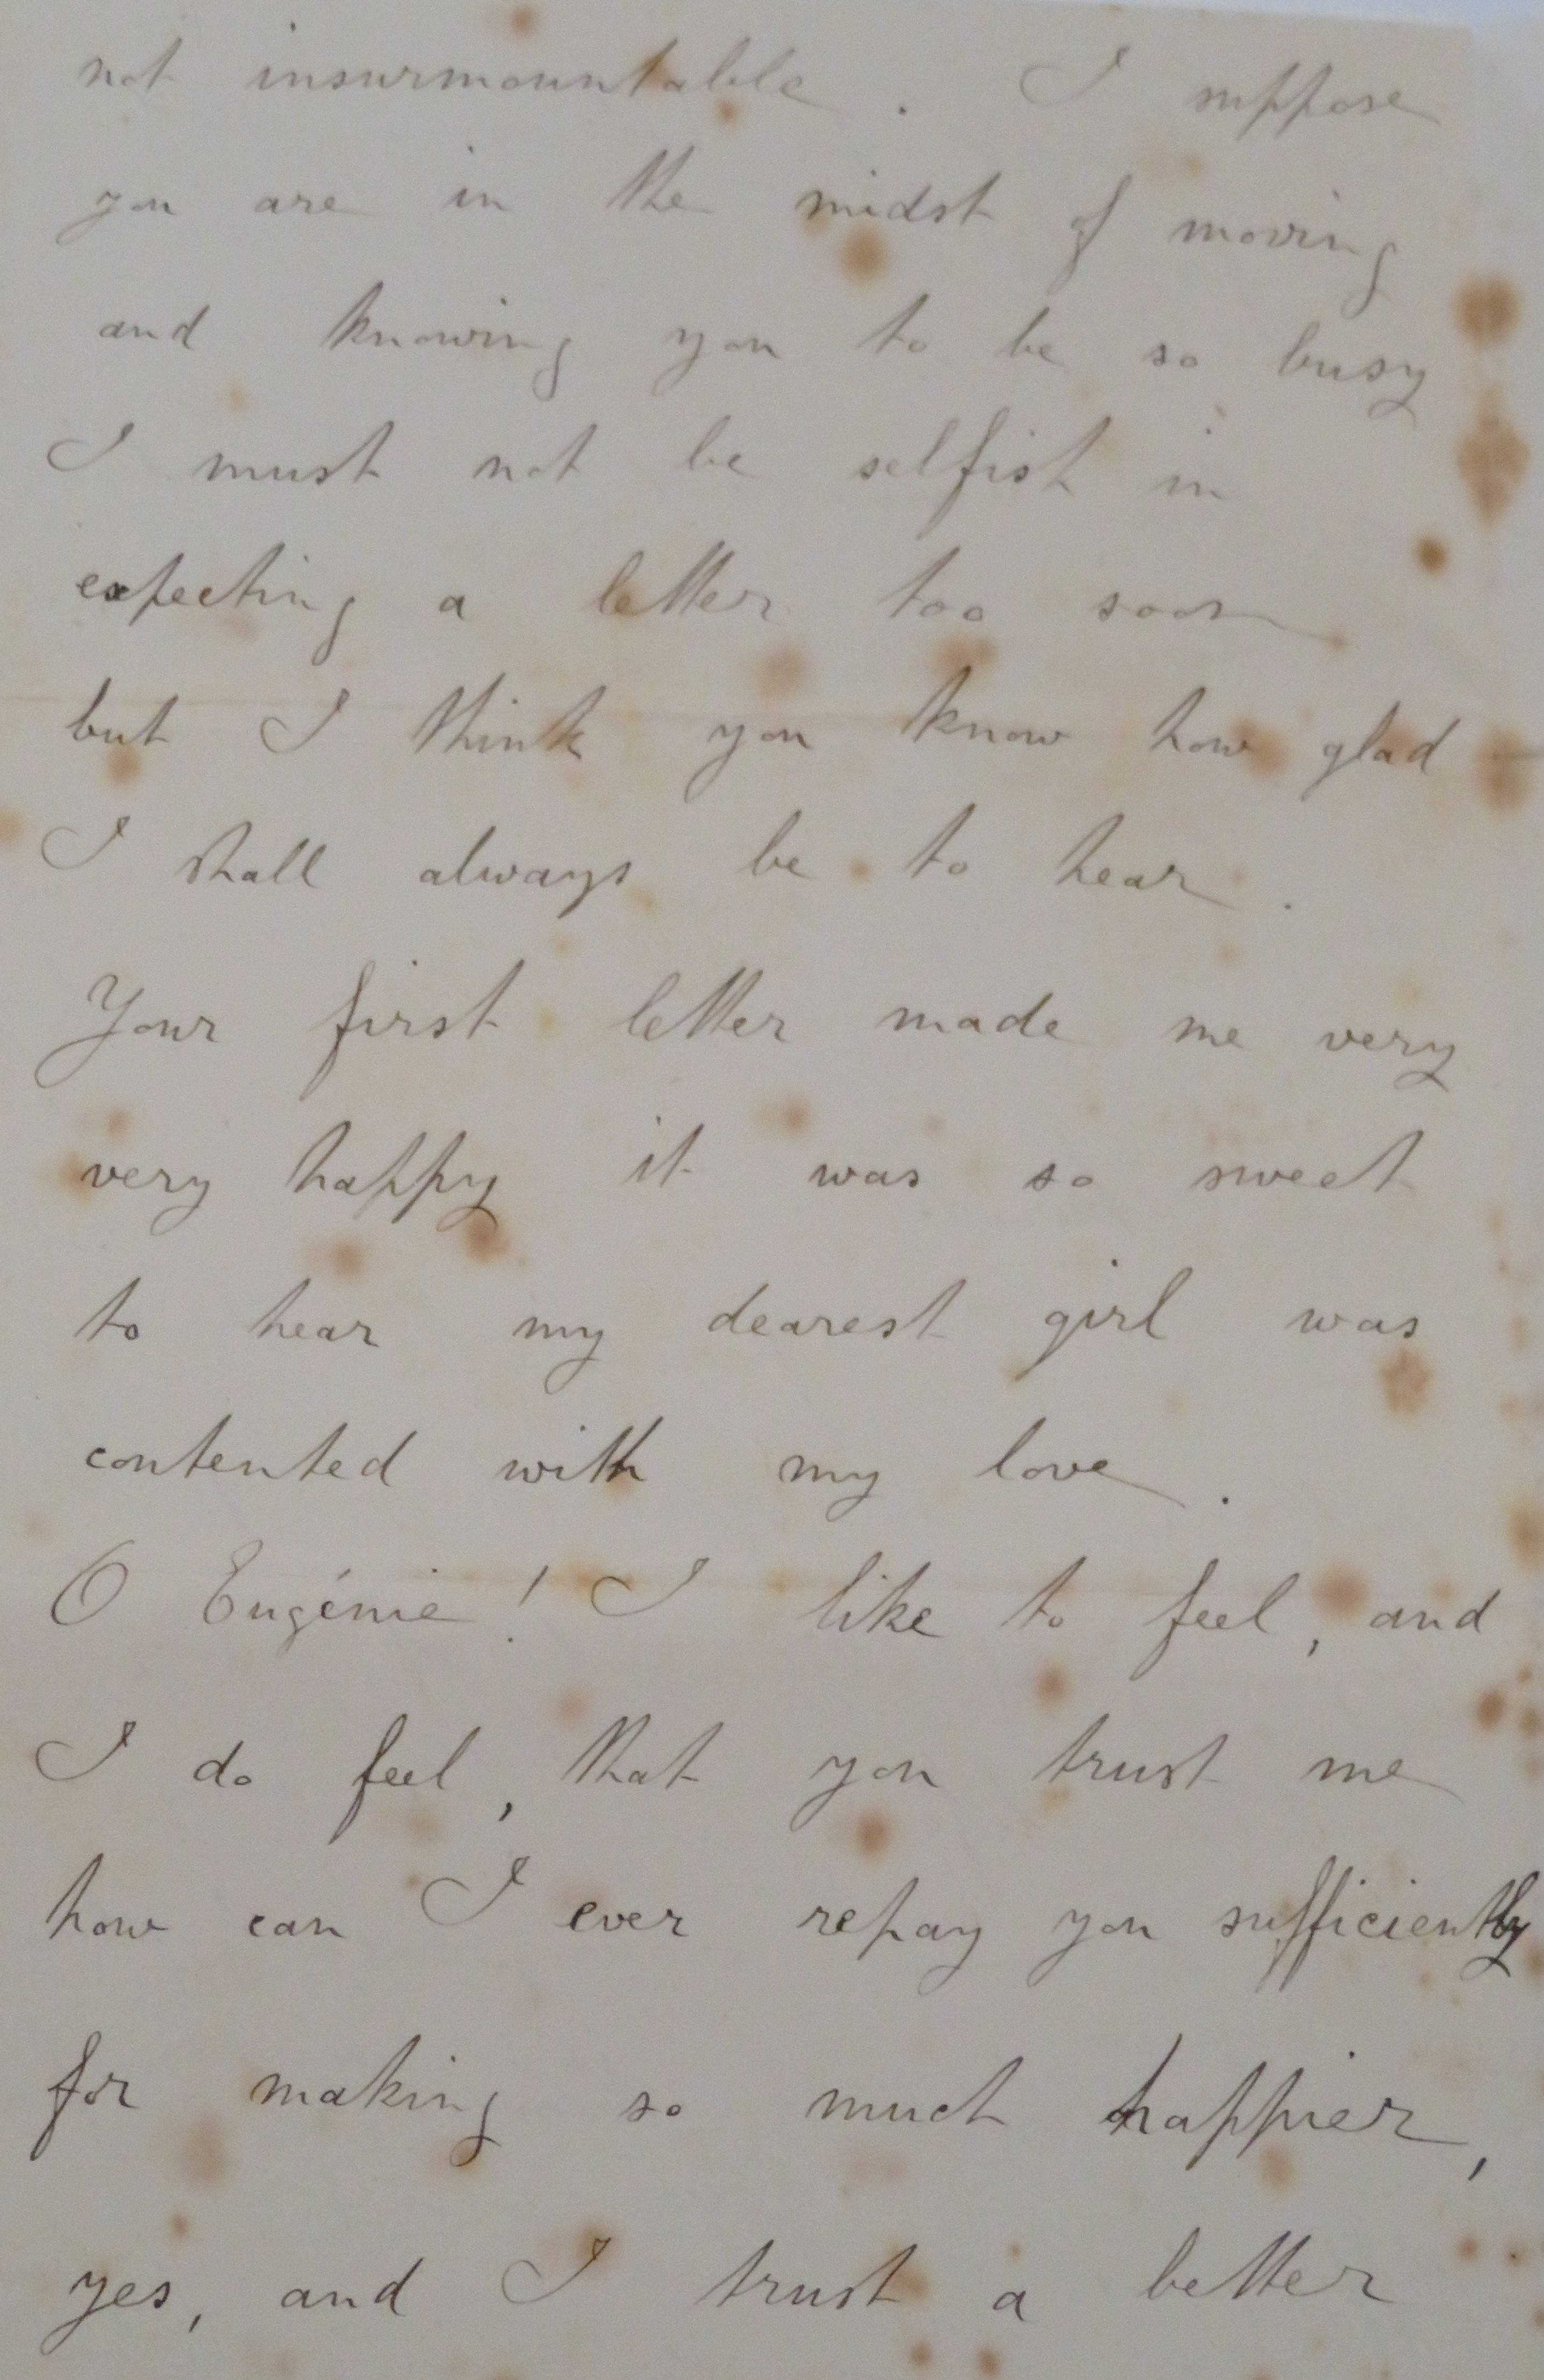 not insurmountable. I suppose
you are in the midst of moving
and knowing you to be so busy
I must not be selfish in
expecting a letter too soon
but I think you know how glad
I shall always be to hear.
Your first letter made me very
very happy it was so sweet
to hear my dearest girl was
contented with my love.
O Eugénie! I like to feel, and
I do feel, that you trust me
how can I ever repay you sufficiently
for making so much happier,
yes, and I trust a better